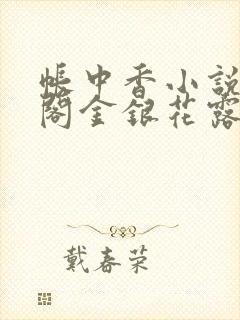 帐中香小説
閣金銀花露
戴春荣